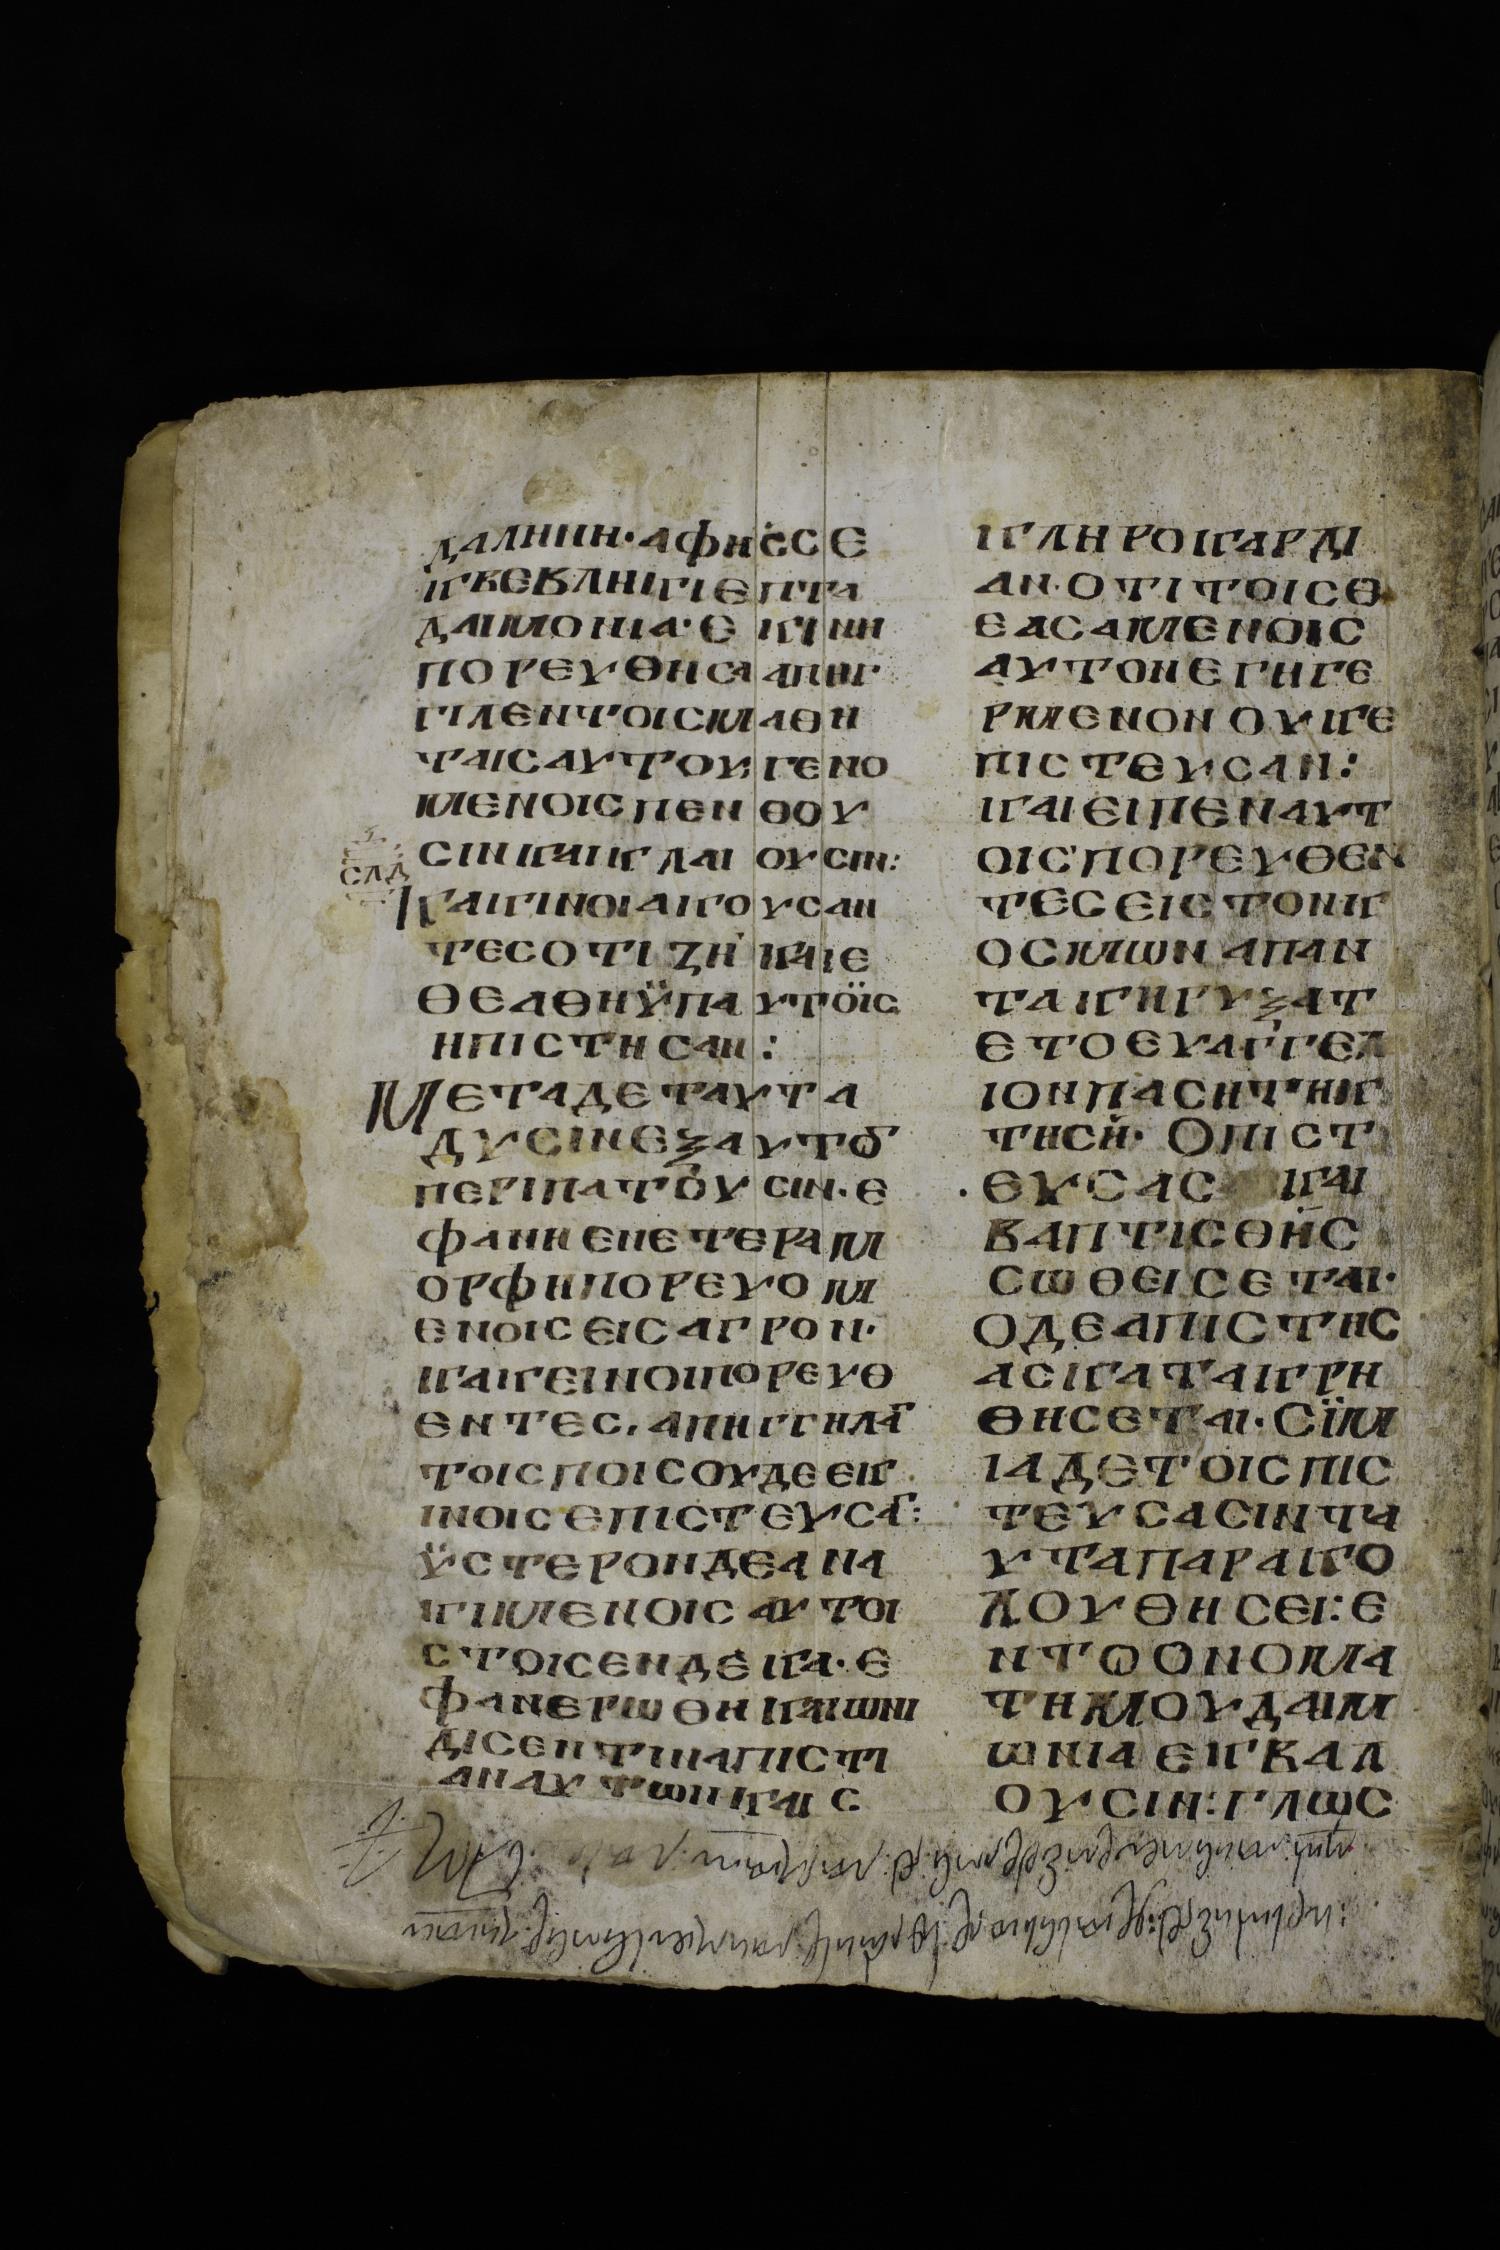 ΔΑΛΗΝΗ·ΑΦΗϹϹΕ
ΚΚΕΒΛΗΚΙΕΠΤΑ
ΔΑΙΜΟΝΙΑ·ΕΚΙΝΗ
ΠΟΡΕΥΘΗϹΑΑΠΗΓ
ΓΙΛΕΝΤΟΙϹΜΑΘΗ
ΤΑΙϹΑΥΤΟΥ·ΓΕΝΟ
ΜΕΝΟΙϹΠΕΝΘΟΥ
ϹΙΝΚΑΙΚΛΑΙΟΥϹΙΝ:
ϹΛΔ
ΚΑΙΚΙΝΟΙΑΚΟΥϹΑΝ
ΤΕϹΟΤΙΖΗΚΑΙΕ
ΘΕΑΘΗΫΠΑΥΤΟΪϹ
ΗΠΙϹΤΗϹΑΝ:
ΜΕΤΑΔΕΤΑΥΤΑ
ΔΥϹΙΝΕΞΑΥΤΟ͂
ΠΕΡΙΠΑΤΟΥϹΙΝ·Ε
ΦΑΝΗΕΝΕΤΕΡΑΜ
ΟΡΦΗΠΟΡΕΥΟΜ
ΕΝΟΙϹΕΙϹΑΓΡΟΝ·
ΚΑΙΚΕΙΝΟΙΠΟΡΕΥΘ
ΕΝΤΕϹ·ΑΠΗΓΓΗΛΑ͞
ΤΟΙϹΠΟΙϹΟΥΔΕΕΚ
ΙΝΟΙϹΕΠΙϹΤΕΥϹΑ͞:
ΫϹΤΕΡΟΝΔΕΑΝΑ
ΚΙΜΕΝΟΙϹΑΥΤΟΙ
ϹΤΟΙϹΕΝΔΕΚΑ·Ε
ΦΑΝΕΡΩΘΗΚΑΙΩΝΙ
ΔΙϹΕΝΤΙΝΑΠΙϹΤΙ
ΑΝΑΥΤΩΝΚΑΙϹ
ΚΛΗΡΟΚΑΡΔΙ
ΑΝ·ΟΤΙΤΟΙϹΘ
ΕΑϹΑΜΕΝΟΙϹ
ΑΥΤΟΝΕΓΗΓΕ
ΡΜΕΝΟΝΟΥΚΕ
ΠΙϹΤΕΥϹΑΝ:
ΚΑΙΕΙΠΕΝΑΥΤ
ΟΙϹΠΟΡΕΥΘΕΝ
ΤΕϹΕΙϹΤΟΝΚ
ΟϹΜΩΝΑΠΑΝ
ΤΑΚΗΡΥΞΑΤ
ΕΤΟΕΥΑΓΓΕΛ
ΙΟΝΠΑϹΗΤΗΚ
ΤΗϹΗ·ΟΠΙϹΤ
ΕΥϹΑϹ ΚΑΙ
ΒΑΠΤΙϹΘΗϹ
ϹΩΘΕΙϹΕΤΑΙ·
ΟΔΕΑΠΙϹΤΗϹ
ΑϹΚΑΤΑΚΡΗ
ΘΗϹΕΤΑΙ·ϹΪΜ
ΙΑΔΕΤΟΙϹΠΙϹ
ΤΕΥϹΑϹΙΝΤΑ
ΥΤΑΠΑΡΑΚΟ
ΛΟΥΘΗϹΕΙ:Ε
ΝΤΩΟΝΟΜΑ
ΤΗΜΟΥΔΑΙΜ
ΩΝΙΑΕΚΒΑΛ
ΟΥϹΙΝ:ΓΛΩϹ